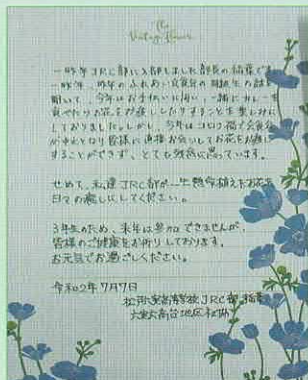 The
Vintage flower
一昨年JRC部に入部しました部長の稲葉です
一昨年、昨年のふれあい会食会の
聞いて、今年はお手伝いに伺い、一緒にカレーを
食べたりお花をお渡ししたりすることを楽しみに
しておりました。しかし、今年はコロナ禍で会食会
が中止となり皆様に直接お会いしてお花をお渡し
することができず、とても残念に思っています。
せめて、私達JRC部が一生懸命植えたお花を
日々の癒しにしてください。
3年生のため、来年は参加できませんが、
皆様のご健康をお祈りしております。
お元気でお過ごしください。
令和2年7月7日
高等学校JRC部 稲葉
大東大高台地区社協